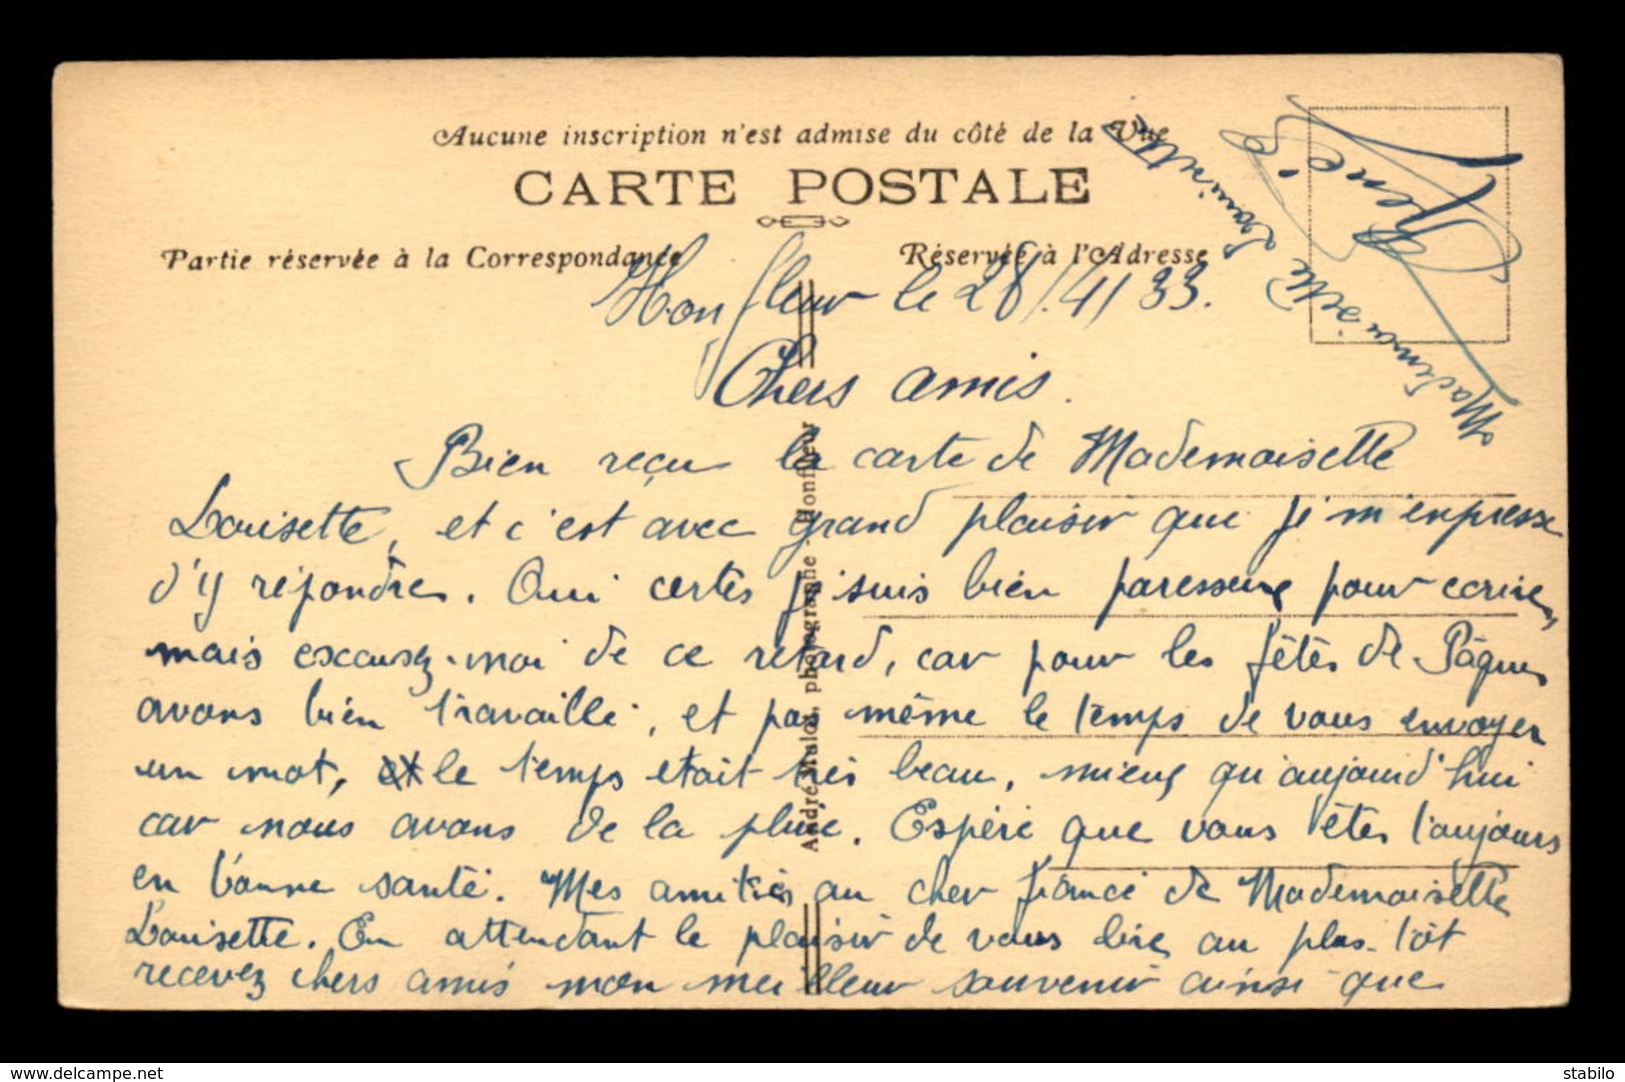 Aucune inscription n'est admise du côté de la Vue
CARTE POSTALE
Partie réservée à la Correspondance
Réservée à l'Adresse
Honfleur le 28/4/33.
Chers amis.
Bien reçu la carte de Mademoiselle
Louisette, et c'est avec grand plaisir que je m'enpresse
d'y répondre. Oui certes je suis bien paresseuse pour ecrire,
mais excusez-moi de ce retard, car pour les fêtes de Pâques
avons bien travaillé, et pas même le temps de vous envoyer
un mot, le temps etait très beau, mieux qu'aujourd'hui
car nous avons de la pluie. Espère que vous êtes toujours
en bonne santé. Mes amitiés au cher fiancé de Mademoiselle
Louisette. En attendant le plaisir de vous lire au plus-tôt
recevez chers amis mon meilleur souvenir ainsi que
Mademoiselle Louisette
Renée
André Mulot, photographe - Honfleur
delcampe.net
stabilo